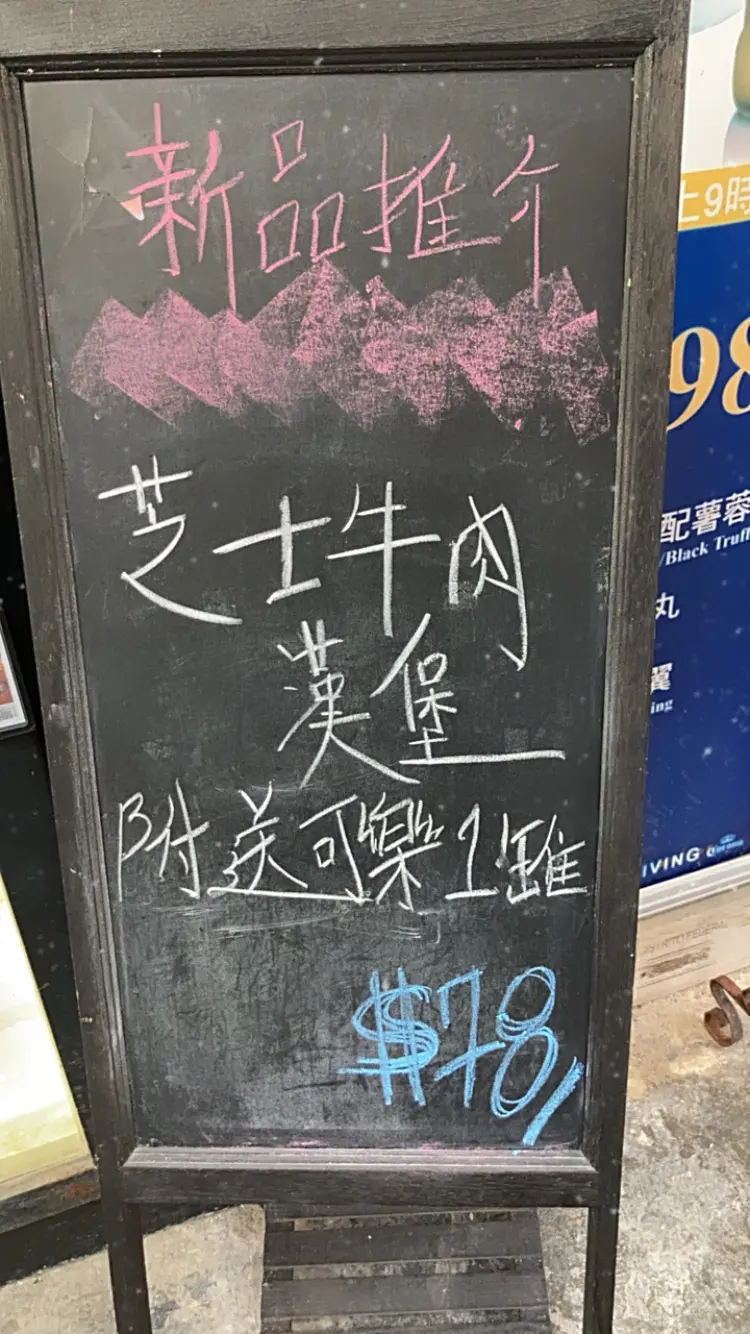 新品推介
芝士牛肉
漢堡
附送可樂1罐
$78/
上9時
98
配薯蓉
/Black Truff
丸
翼
ing
IVING